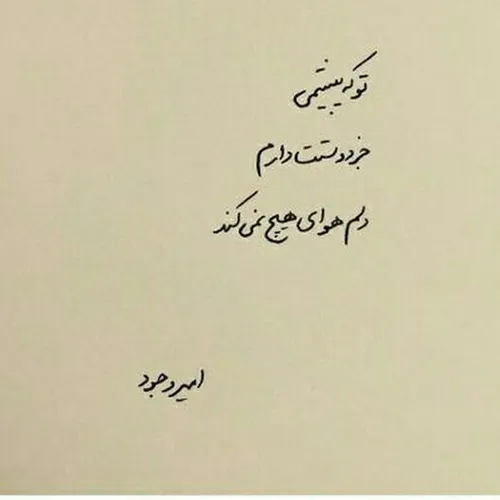 تو که پیشمی
جز دوستت دارم
دلم هوای هیچ نمی‌کند
امیر وجود